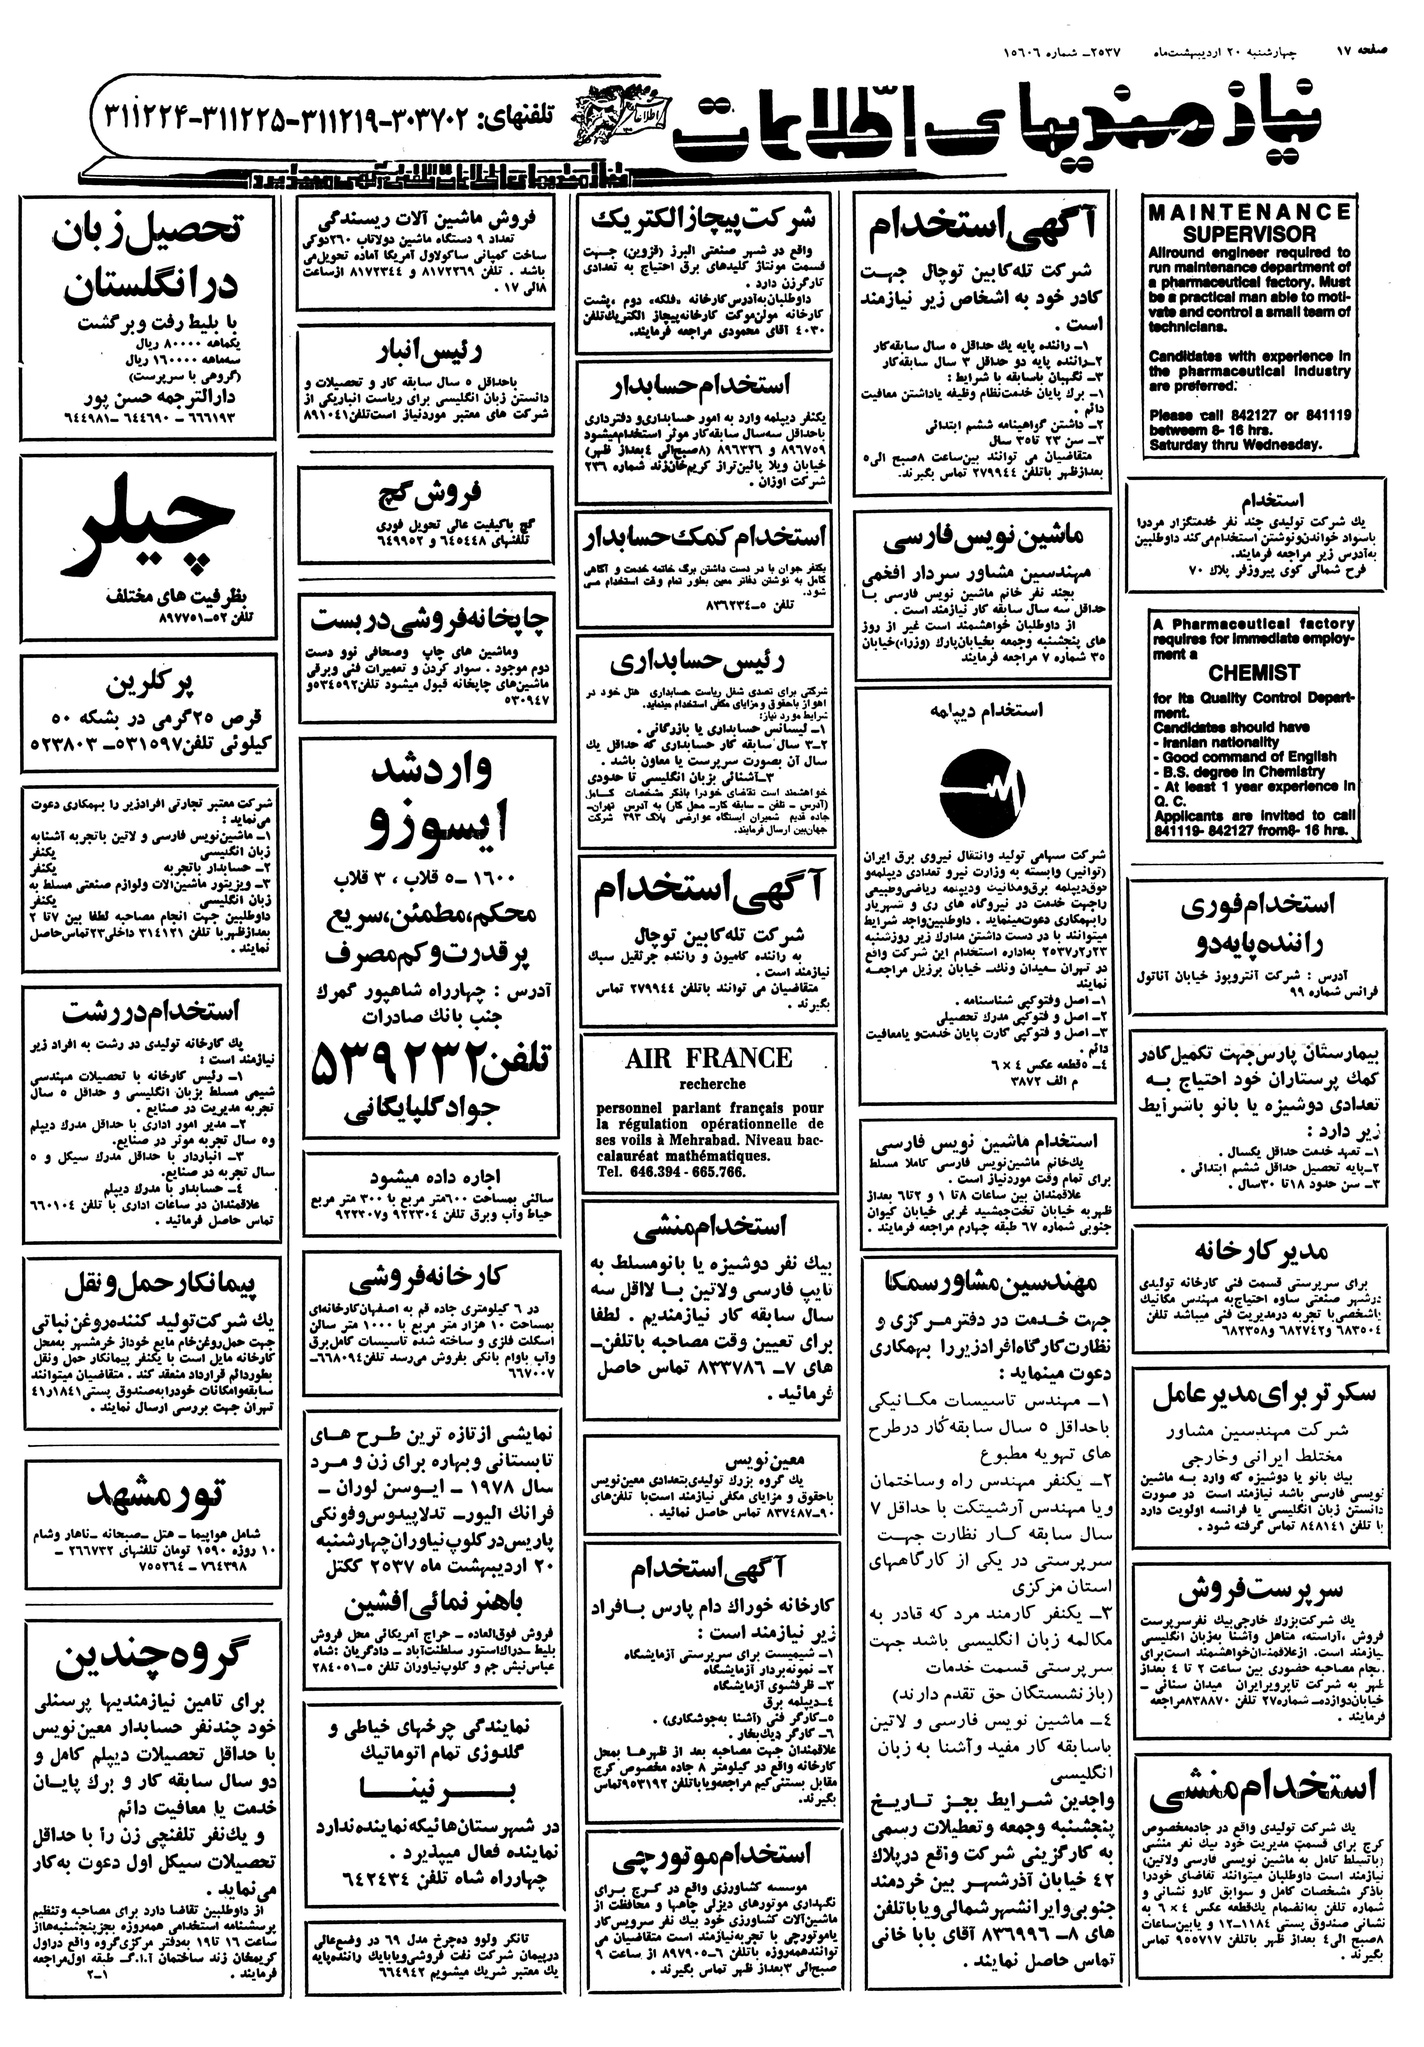 صفحه ۱۷
چهارشنبه ۲۰ اردیبهشت‌ماه ۲۵۳۷- شماره ۱۵۶۰۶
نیازمندیهای اطلاعات
تلفنهای: ۳۰۳۷۰۲-۳۱۱۲۱۹-۳۱۱۲۲۵-۳۱۱۲۲۴
MAINTENANCE
SUPERVISOR
Allround engineer required to
run maintenance department of
a pharmaceutical factory. Must
be a practical man able to moti-
vate and control a small team of
technicians.
Candidates with experience in
the pharmaceutical industry
are preferred.
Please call 842127 or 841119
between 8- 16 hrs.
Saturday thru Wednesday.
استخدام
یك شركت تولیدی چند نفر خدمتگزار مرد را
باسواد خواندن‌ونوشتن استخدام‌می‌كند داوطلبین
به‌آدرس زیر مراجعه فرمایند.
فرح شمالی كوی پیروزفر پلاك ۷۰
A Pharmaceutical factory
requires for immediate employ-
ment a
CHEMIST
for its Quality Control Depart-
ment.
Candidates should have
- Iranian nationality
- Good command of English
- B.S. degree in Chemistry
- At least 1 year experience in
Q. C.
Applicants are invited to call
841119- 842127 from8- 16 hrs.
استخدام فوری
راننده پایه دو
آدرس : شركت آنتروپوز خیابان آناتول
فرانس شماره ۹۹
بیمارستان پارس جهت تكمیل كادر
كمك پرستاران خود احتیاج به
تعدادی دوشیزه یا بانو باشرایط
زیر دارد :
۱- تعهد خدمت حداقل یكسال .
۲-پایه تحصیل حداقل ششم ابتدائی .
۳- سن حدود ۱۸ تا ۳۰ سال .
مدیر كارخانه
برای سرپرستی قسمت فنی كارخانه تولیدی
درشهر صنعتی ساوه احتیاج‌به مهندس مكانیك
یاشخصی با تجربه درمدیریت فنی میباشد تلفن
۶۸۳۰۰۴ و ۶۸۲۷۴۲ و ۶۸۲۳۵۸
سكرتر برای مدیر عامل
شركت مهندسین مشاور
مختلط ایرانی وخارجی
بیك بانو یا دوشیزه كه وارد به ماشین
نویسی فارسی باشد نیازمند است در صورت
دانستن زبان انگلیسی یا فرانسه اولویت دارد
با تلفن ۸۴۸۱۴۱ تماس گرفته شود .
سرپرست فروش
یك شركت‌بزرك خارجی‌بیك نفرسرپرست
فروش ،آراسته، متاهل وآشنا به‌زبان انگلیسی
نیازمند است. ازعلاقمندان‌خواهشمند است‌برای
انجام مصاحبه حضوری بین ساعت ۲ تا ۴ بعداز
ظهر به شركت تاپرویرایران میدان سنائی -
خیابان‌دوازده- شماره‌۲۷ تلفن ۸۳۸۸۷۰مراجعه
فرمایند .
استخدام منشی
یك شركت تولیدی واقع در جاده‌مخصوص
كرج برای قسمت مدیریت خود بیك نفر منشی
(باتسلط كامل به ماشین نویسی فارسی ولاتین)
نیازمند است داوطلبان میتوانند تقاضای خودرا
باذكر مشخصات كامل و سوابق كارو نشانی و
شماره تلفن به‌انضمام یك‌قطعه عكس ۴ × ۶ به
نشانی صندوق پستی ۱۱۸۴-۱۲ و یا بین‌ساعات
۸صبح الی ۴ بعداز ظهر باتلفن ۹۵۵۷۱۷ تماس
بگیرند .
آگهی استخدام
شركت تله كابین توچال جهت
كادر خود به اشخاص زیر نیازمند
است .
۱- راننده پایه یك حداقل ۵ سال سابقه‌كار
۲-راننده پایه دو حداقل ۳ سال سابقه‌كار
۳- نگهبان باسابقه با شرایط :
۱- برك پایان خدمت‌نظام وظیفه یاداشتن معافیت
دائم .
۲- داشتن گواهینامه ششم ابتدائی
۳- سن ۲۳ تا ۳۵ سال
متقاضیان می توانند بین‌ساعت ۸صبح الی۵
بعدازظهر باتلفن ۲۷۹۹۴۴ تماس بگیرند.
ماشین نویس فارسی
مهندسین مشاور سردار افخمی
بچند نفر خانم ماشین نویس فارسی با
حداقل سه سال سابقه كار نیازمند است .
از داوطلبان خواهشمند است غیر از روز
های پنجشنبه وجمعه بخیابان‌پارك (وزراء)خیابان
۳۵ شماره ۷ مراجعه فرمایند
استخدام دیپلمه
شركت سهامی تولید وانتقال نیروی برق ایران
(توانیر) وابسته به وزارت نیرو تعدادی دیپلمه‌و
فوق‌دیپلمه برق‌ومكانیك ودیپلمه ریاضی‌وطبیعی
راجهت خدمت در نیروگاه های ری و شهریار
رابهمكاری دعوت‌مینماید . داوطلبین‌واجد شرایط
میتوانند با در دست داشتن مدارك زیر روزشنبه
۲۳ر۲ر۲۵۳۷ به‌اداره استخدام این شركت واقع
در تهران -میدان ونك- خیابان برزیل مراجعه
نمایند
۱- اصل وفتوكپی شناسنامه .
۲- اصل و فتوكپی مدرك تحصیلی
۳- اصل و فتوكپی كارت پایان خدمت‌و یامعافیت
دائم .
۴- ۵قطعه عكس ۴ × ۶
م الف ۳۸۷۲
استخدام ماشین نویس فارسی
یك‌خانم ماشین‌نویس فارسی كاملا مسلط
برای تمام وقت موردنیاز است .
علاقمندان بین ساعات ۸ تا ۱ و ۲ تا ۶ بعداز
ظهربه خیابان تخت‌جمشید غربی خیابان كیوان
جنوبی شماره ۶۷ طبقه چهارم مراجعه فرمایند .
مهندسین مشاور سمكا
جهت خدمت در دفتر مركزی و
نظارت كارگاه افرادزیر را بهمكاری
دعوت مینماید :
۱- مهندس تاسیسات مكانیكی
باحداقل ۵ سال سابقه‌كار درطرح
های تهویه مطبوع
۲- یكنفر مهندس راه وساختمان
ویا مهندس آرشیتكت با حداقل ۷
سال سابقه كار نظارت جهت
سرپرستی در یكی از كارگاههای
استان مركزی
۳- یكنفر كارمند مرد كه قادر به
مكالمه زبان انگلیسی باشد جهت
سرپرستی قسمت خدمات
(بازنشستگان حق تقدم دارند)
۴- ماشین نویس فارسی و لاتین
باسابقه كار مفید وآشنا به زبان
انگلیسی
واجدین شرایط بجز تاریخ
پنجشنبه وجمعه و تعطیلات رسمی
به كارگزینی شركت واقع در پلاك
۴۲ خیابان آذرشهر بین خردمند
جنوبی و ایرانشهر شمالی و یا با تلفن
های ۸- ۸۳۶۹۹۶ آقای بابا خانی
تماس حاصل نمایند .
شركت پیچاز الكتریك
واقع در شهر صنعتی البرز (قزوین) جهت
قسمت مونتاژ كلیدهای برق احتیاج به تعدادی
كارگرزن دارد .
داوطلبان‌به‌آدرس‌كارخانه ،فلكه، دوم ،پشت
كارخانه مولن‌موكت كارخانه‌پیچاز الكتریك‌تلفن
۴۰۳۰ آقای محمودی مراجعه فرمایند.
استخدام حسابدار
یكنفر دیپلمه وارد به امور حسابداری‌و دفترداری
باحداقل سه‌سال سابقه‌كار موثر استخدام‌میشود
۸۹۶۷۵۹ و ۸۹۶۳۲۶ (۸صبح‌الی ۴بعداز ظهر)
خیابان ویلا پائین‌تراز كریم‌خان‌زند شماره ۲۳۶
شركت اوزان .
استخدام كمك حسابدار
یكنفر جوان با در دست داشتن برگ خاتمه خدمت و آگاهی
كامل به نوشتن دفاتر معین بطور تمام وقت استخدام می
شود.
تلفن ۵-۸۳۶۲۳۴
رئیس حسابداری
شركتی برای تصدی شغل ریاست حسابداری هتل خود در
اهواز باحقوق و مزایای مكفی استخدام مینماید.
شرایط مورد نیاز:
۱- لیسانس حسابداری یا بازرگانی .
۲-۳ سال سابقه كار حسابداری كه حداقل یك
سال آن بصورت سرپرست یا معاون باشد .
۳-آشنائی بزبان انگلیسی تا حدودی
خواهشمند است تقاضای خودرا باذكر مشخصات كامل
(آدرس - تلفن - سابقه كار- محل كار) به آدرس تهران-
جاده قدیم شمیران ایستگاه عوارضی پلاك ۳۹۳ شركت
جهان‌بین ارسال فرمایند.
آگهی استخدام
شركت تله كابین توچال
به راننده كامیون و راننده جرثقیل سبك
نیازمند است .
متقاضیان می توانند باتلفن ۲۷۹۹۴۴ تماس
بگیرند .
AIR FRANCE
recherche
personnel parlant français pour
la régulation opérationnelle de
ses voils à Mehrabad. Niveau bac-
calauréat mathématiques.
Tel. 646.394 - 665.766.
استخدام منشی
بیك نفر دوشیزه یا بانو مسلط به
تایپ فارسی ولاتین با لااقل سه
سال سابقه كار نیازمندیم . لطفا
برای تعیین وقت مصاحبه باتلفن-
های ۷- ۸۳۳۷۸۶ تماس حاصل
فرمائید .
معین نویس
یك گروه بزرك تولیدی‌بتعدادی معین‌نویس
باحقوق و مزایای مكفی نیازمند است‌با تلفن‌های
۹۰-۸۳۷۴۸۷ تماس حاصل نمائید .
آگهی استخدام
كارخانه خوراك دام پارس بافراد
زیر نیازمند است :
۱- شیمیست برای سرپرستی آزمایشگاه
۲- نمونه‌بردار آزمایشگاه
۳- ظرفشوی آزمایشگاه
۴-دیپلمه برق
۵-كارگر فنی (آشنا به‌جوشكاری) .
۶- كارگر دیك‌بخار .
علاقمندان جهت مصاحبه بعد از ظهرها بمحل
كارخانه واقع در كیلومتر ۸ جاده مخصوص كرج
مقابل بستنی‌كیم مراجعه‌ویاباتلفن ۹۵۳۱۹۲تماس
بگیرند.
استخدام موتورچی
موسسه كشاورزی واقع در كرج برای
نگهداری موتورهای دیزلی چاهها و محافظت از
ماشین‌آلات كشاورزی خود بیك نفر سرویس‌كار
یاموتورچی با تجربه‌نیازمند است متقاضیان می
توانندهمه‌روزه باتلفن ۶-۸۹۷۹۰۵ از ساعت ۹
صبح‌الی ۳بعداز ظهر تماس بگیرند .
فروش ماشین آلات ریسندگی
تعداد ۹ دستگاه ماشین دولاتاب ۲۶۰دوكی
ساخت كمپانی ساكولاول آمریكا آماده تحویل‌می
باشد . تلفن ۸۱۷۲۳۶۹ و ۸۱۷۲۳۴۴ ازساعت
۸الی ۱۷ .
رئیس انبار
باحداقل ۵ سال سابقه كار و تحصیلات و
دانستن زبان انگلیسی برای ریاست انباریكی از
شركت های معتبر موردنیاز است‌تلفن۸۹۱۰۴۱
فروش گچ
گچ باكیفیت عالی تحویل فوری
تلفنهای ۶۴۵۴۴۸ و ۶۴۹۹۵۲
چاپخانه فروشی دربست
وماشین های چاپ وصحافی نوو دست
دوم موجود . سوار كردن و تعمیرات فنی وبرقی
ماشین‌های چاپخانه قبول میشود تلفن۵۳۴۵۹۲و
۵۳۰۹۴۷
وارد شد
ایسوزو
۱۶۰۰ -۵ قلاب ، ۳ قلاب
محكم، مطمئن، سریع
پرقدرت و كم مصرف
آدرس : چهارراه شاهپور گمرك
جنب بانك صادرات
تلفن ۵۳۹۲۳۲
جواد گلپایگانی
اجاره داده میشود
سالنی بمساحت ۶۰۰متر مربع با ۳۰۰ متر مربع
حیاط وآب وبرق تلفن ۹۲۲۳۰۴ و۹۲۲۳۰۷
كارخانه فروشی
در ۶ كیلومتری جاده قم به اصفهان‌كارخانه‌ای
بمساحت ۱۰ هزار متر مربع با ۱۰۰۰ متر سالن
اسكلت فلزی و ساخته شده تاسیسات كامل‌برق
وآب باوام بانكی بفروش می‌رسد تلفن۶۶۸۰۹۴-
۶۶۷۰۰۷
نمایشی از تازه ترین طرح های
تابستانی و بهاره برای زن و مرد
سال ۱۹۷۸ - ایوسن لوران -
فرانك الیور- تدلاپیدوس و فونكی
پاریس در كلوپ نیاوران چهارشنبه
۲۰ اردیبهشت ماه ۲۵۳۷ ككتل
باهنرنمائی افشین
فروش فوق‌العاده - حراج آمریكائی محل فروش
بلیط -دراك‌استور سلطنت‌آباد- دادگریان :شاه
عباس‌نبش جم و كلوپ‌نیاوران تلفن ۵-۲۸۴۰۵۱
نمایندگی چرخهای خیاطی و
گلدوزی تمام اتوماتیك
برنینا
در شهرستان‌هائیكه نماینده ندارد
نماینده فعال میپذیرد .
چهارراه شاه تلفن ۶۴۲۴۳۴
تانكر ولوو ده‌چرخ مدل ۶۹ در وضع‌عالی
درپیمان شركت نفت فروشی‌ویابایك راننده‌پایه
یك معتبر شریك میشویم ۶۶۴۹۴۲
تحصیل زبان
در انگلستان
با بلیط رفت و برگشت
یكماهه ۸۰۰۰۰ ریال
سه‌ماهه ۱۶۰۰۰۰ ریال
(گروهی با سرپرست)
دارالترجمه حسن پور
۶۶۶۱۹۳ -۶۴۴۶۹۰ -۶۴۴۹۸۱
چیلر
بظرفیت های مختلف
تلفن ۵۲-۸۹۷۷۵۱
پركلرین
قرص ۲۵گرمی در بشكه ۵۰
كیلوئی تلفن۵۳۱۵۹۷- ۵۲۳۸۰۳
شركت معتبر تجارتی افرادزیر را بهمكاری دعوت
می‌نماید :
۱- ماشین‌نویس فارسی و لاتین باتجربه آشنابه
زبان انگلیسی یكنفر
۲- حسابدار باتجربه یكنفر
۳- ویزیتور ماشین‌الات ولوازم صنعتی مسلط به
زبان انگلیسی یكنفر
داوطلبین جهت انجام مصاحبه لطفا بین ۷تا ۲
بعدازظهربا تلفن ۳۱۴۱۲۱ داخلی ۲۳تماس‌حاصل
نمایند .
استخدام در رشت
یك كارخانه تولیدی در رشت به افراد زیر
نیازمند است :
۱- رئیس كارخانه با تحصیلات مهندسی
شیمی مسلط بزبان انگلیسی و حداقل ۵ سال
تجربه مدیریت در صنایع .
۲- مدیر امور اداری با حداقل مدرك دیپلم
و۵ سال تجربه موثر در صنایع.
۳- انباردار با حداقل مدرك سیكل و ۵
سال تجربه در صنایع.
۴- حسابدار با مدرك دیپلم
علاقمندان در ساعات اداری با تلفن ۶۶۰۱۰۴
تماس حاصل فرمائید .
پیمانكار حمل و نقل
یك شركت تولید كننده روغن نباتی
جهت حمل‌روغن‌خام مایع خوداز خرمشهر به‌محل
كارخانه مایل است با یكنفر پیمانكار حمل ونقل
بطوردائم قرارداد منعقد كند . متقاضیان میتوانند
سابقه‌وامكانات خودرابه‌صندوق پستی۱۸۴۱ر۴۱
تهران جهت بررسی ارسال نمایند .
تور مشهد
شامل هواپیما - هتل -صبحانه -ناهار وشام
۱۰ روزه ۱۵۹۰ تومان تلفنهای ۲۶۶۷۳۲ -
۷۶۴۳۹۸- ۷۵۵۲۶۴
گروه چندین
برای تامین نیازمندیها پرسنلی
خود چندنفر حسابدار معین نویس
با حداقل تحصیلات دیپلم كامل و
دو سال سابقه كار و برك پایان
خدمت یا معافیت دائم
و یك نفر تلفنچی زن را با حداقل
تحصیلات سیكل اول دعوت به كار
می‌نماید .
از داوطلبین تقاضا دارد برای مصاحبه وتنظیم
پرسشنامه استخدامی همه‌روزه بجزپنجشنبه‌هااز
ساعت ۱۶ تا ۱۹ به‌دفتر مركزی‌گروه واقع دراول
كریمخان زند ساختمان آ.ا.گ. طبقه اول‌مراجعه
فرمایند . ۱-۲